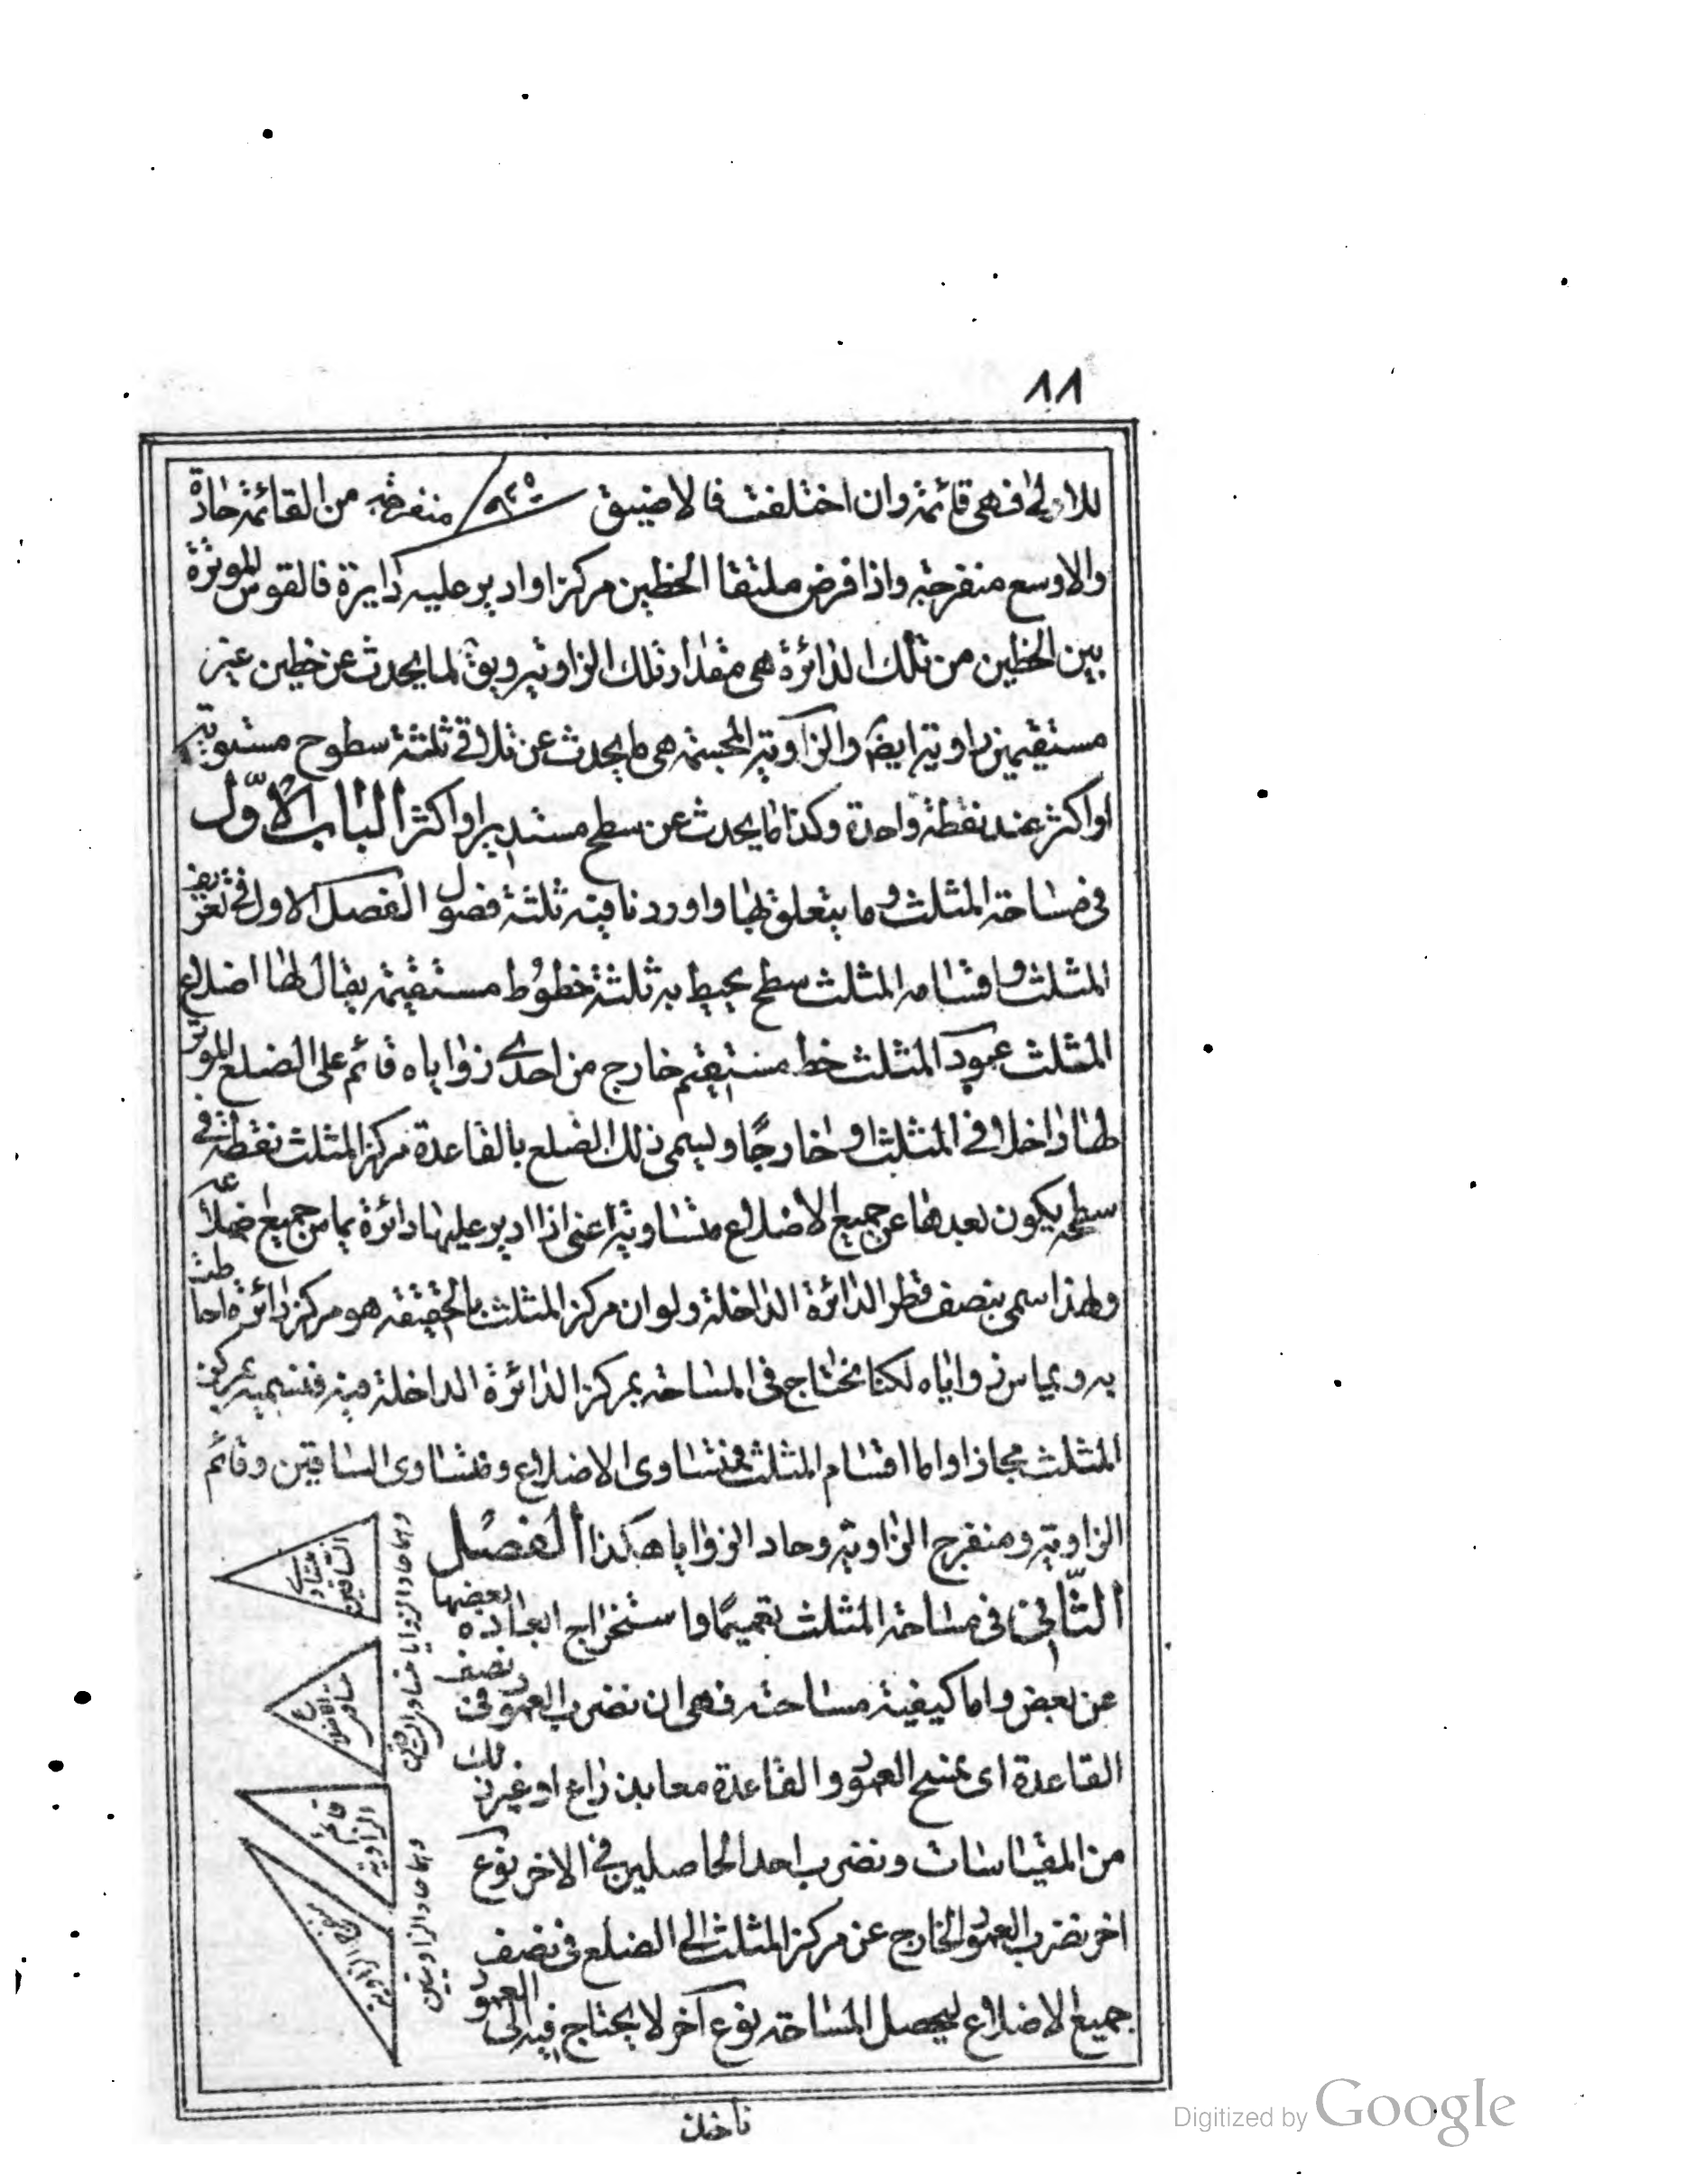 ٨٨
للاولى فهى قائمة وان اختلفت فالاضيق حادة منفرجة من القائمة حادة
والاوسع منفرجة واذا فرض ملتقا الخطين مركزا وادير عليه دايرة فالقوس الموترة
بين الخطين من تلك الدائرة هى مقدار تلك الزاوية ويق لما يحدث عن خطين غير
مستقيمين زاوية ايضا والزاوية المجسمة هى ما يحدث عن تلاقى ثلثة سطوح مستوية
او اكثر عند نقطة واحدة وكذا ما يحدث عن سطح مستدير او اكثر الباب الاوّل
فى مساحة المثلث وما يتعلق بها واوردنا فيه ثلثة فصول الفصل الاول فى تعريف
المثلث واقسامه المثلث سطح يحيط به ثلثة خطوط مستقيمة يقال لها اضلاع
المثلث عمود المثلث خط مستقيم خارج من احدى زواياه قائم على الضلع الموتر
لها داخلا فى المثلث او خارجًا ويسمى ذلك الضلع بالقاعدة مركز المثلث نقطة فى
سطحه يكون بعدها عن جميع الاضلاع متساوية اعنى اذا ادير عليها دائرة يماس جميع اضلاعه
ولهذا سمى بنصف قطر الدائرة الداخلة ولو ان مركز المثلث بالحقيقة هو مركز دائرة احاطت
به ويماس زواياه لكنا نحتاج فى المساحة بمركز الدائرة الداخلة فيه فنسميه بمركز
المثلث مجازا واما اقسام المثلث فمتساوى الاضلاع ومتساوى الساقين وقائم
الزاوية ومنفرج الزاوية وحاد الزوايا هكذا الفصل
الثّانى فى مساحة المثلث تعميمًا واستخراج ابعاده بعضها
عن بعض واما كيفية مساحته فهى ان نضرب العمود فى نصف
القاعدة اى نمسح العمود والقاعدة معا بذراع او غير ذلك
من المقياسات ونضرب احد الحاصلين فى الاخر نوع
اخر نضرب العمود الخارج عن مركز المثلث الى الضلع فى نصف
جميع الاضلاع ليحصل المساحة نوع آخر لا يحتاج فيه الى العمود
متساوى
الساقين
متساوى
الاضلاع
قائم
الزاوية
منفرج الزاوية
وهما حاد الزوايا
وهما حاد الزاويتين
ناخذ
Digitized by Google